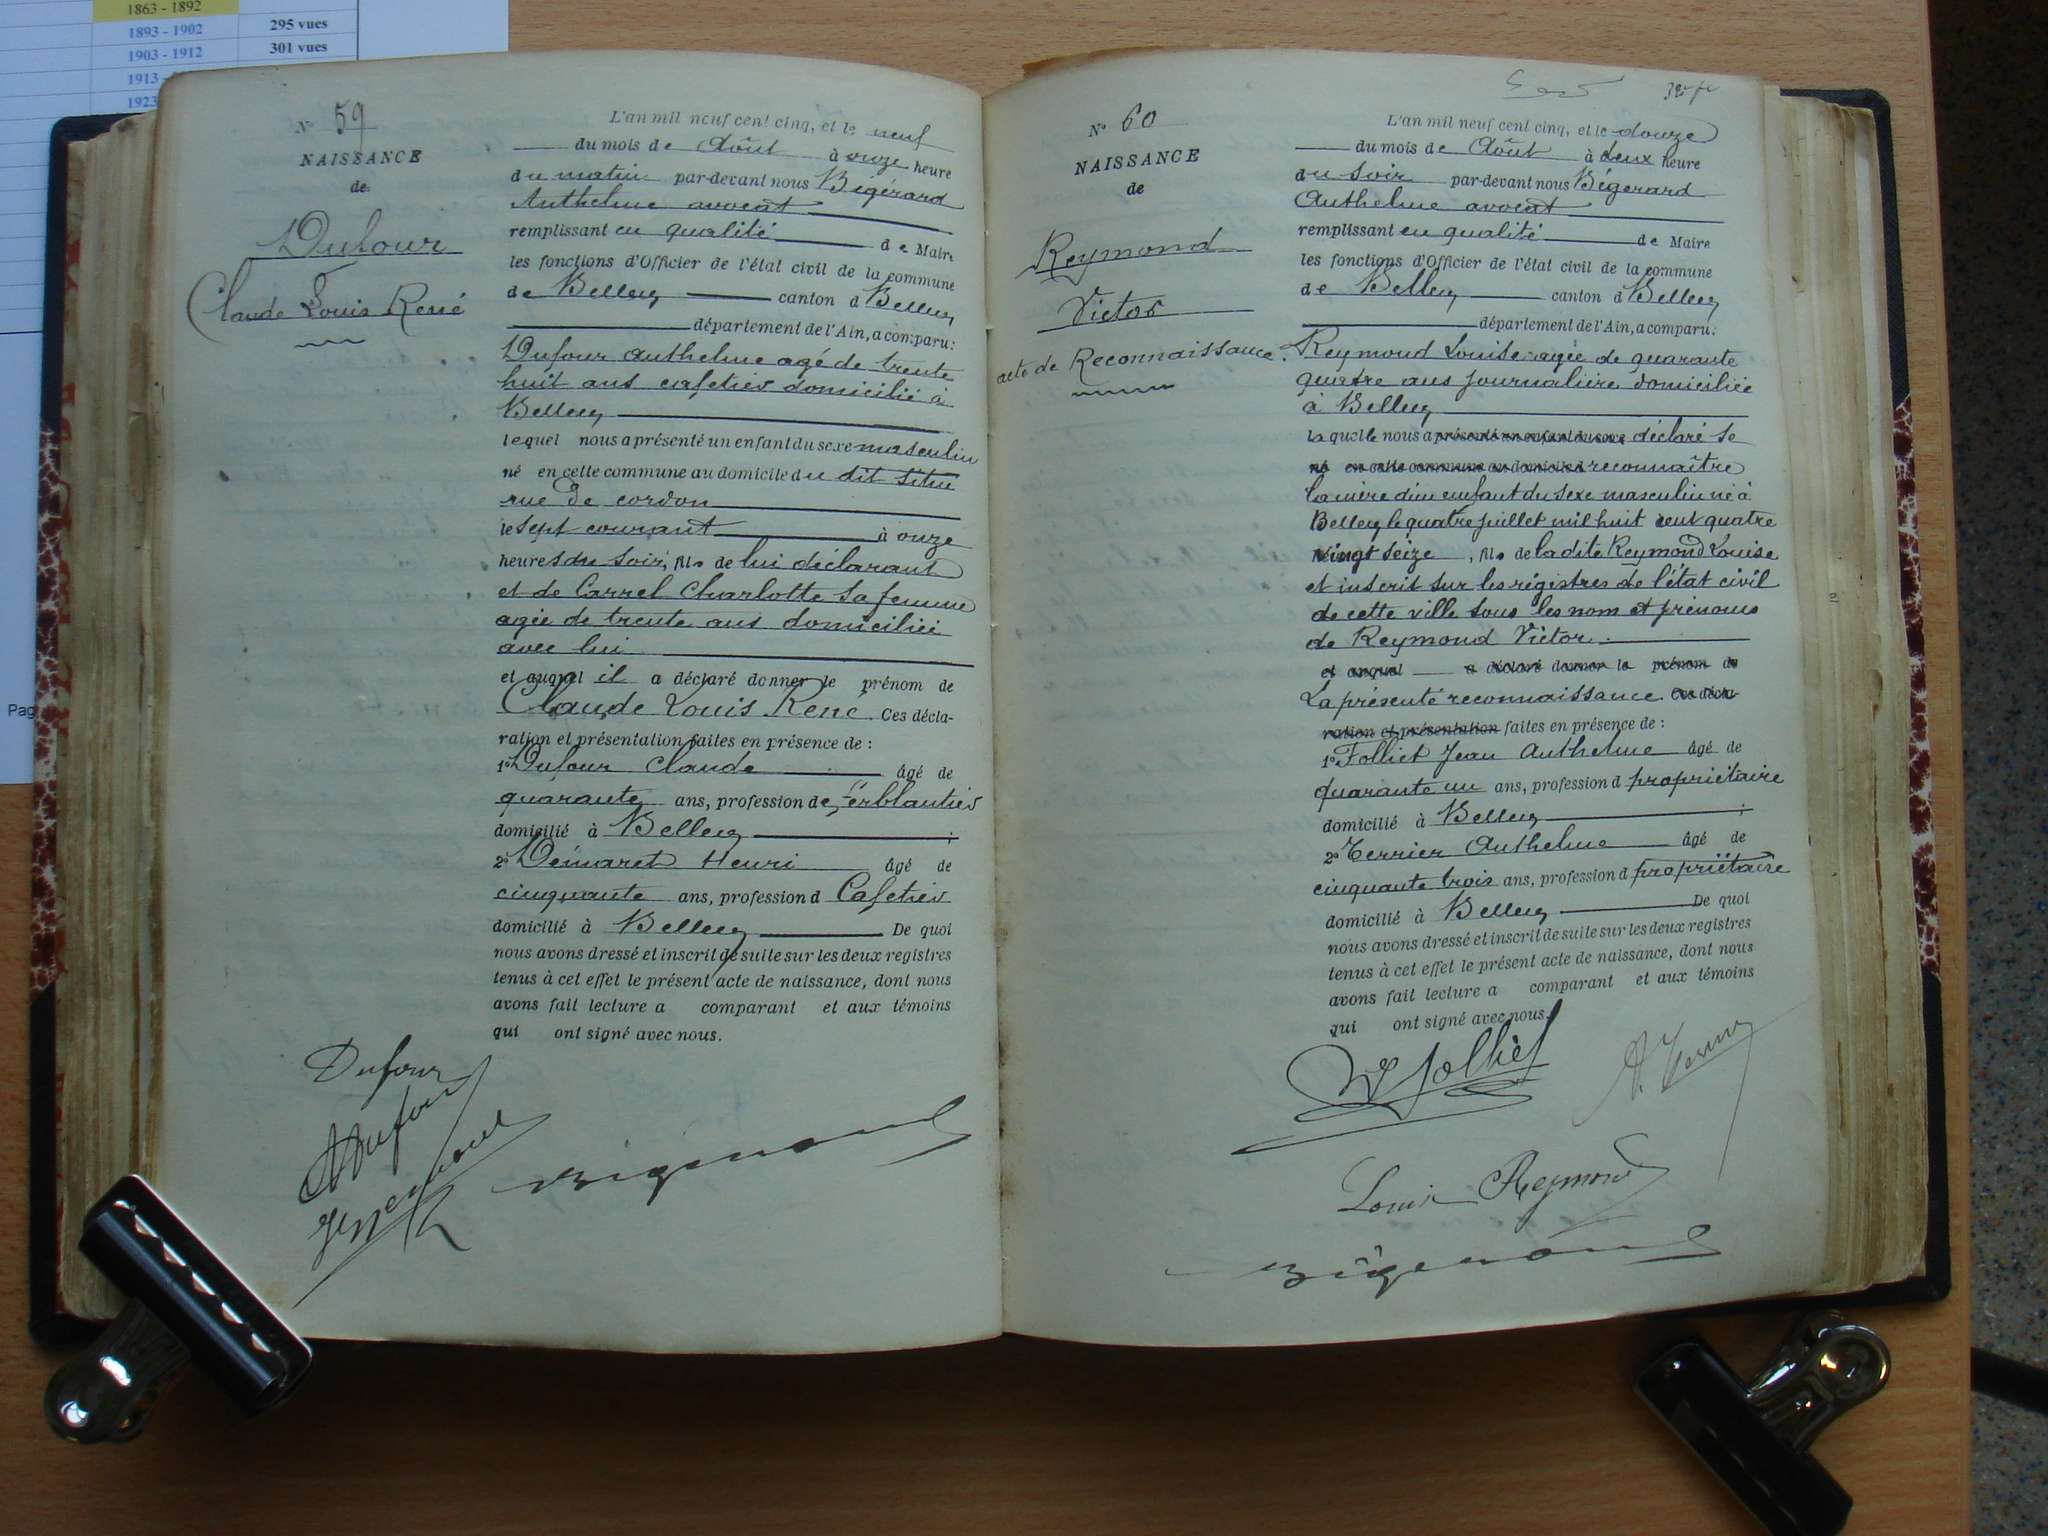 1863 - 1892
1893 - 1902 295 vues
1903 - 1912 301 vues
1913 -
1923
Pag
N° 59
NAISSANCE
de
Dufour
Claude Louis René
L'an mil neuf cent cinq, et le neuf
du mois de Août à onze heure
du matin par-devant nous Bigérard
Anthelme avocat
remplissant en qualité de Maire
les fonctions d'Officier de l'état civil de la commune
de Belley canton d Belley
département de l'Ain, a comparu:
Dufour Anthelme agé de trente
huit ans cafetier domicilié à
Belley
lequel nous a présenté un enfant du sexe masculin
né en cette commune au domicile du dit situé
rue de cordon
le sept courant à onze
heures du soir, fils de lui déclarant
et de Carrel Charlotte sa femme
agée de trente ans domiciliée
avec lui
et auquel il a déclaré donner le prénom de
Claude Louis Rene. Ces décla-
ration et présentation faites en présence de :
1° Dufour Claude âgé de
quarante ans, profession de ferblantier
domicilié à Belley ;
2° Démaret Henri âgé de
cinquante ans, profession d Cafetier
domicilié à Belley De quoi
nous avons dressé et inscrit de suite sur les deux registres
tenus à cet effet le présent acte de naissance, dont nous
avons fait lecture a comparant et aux témoins
qui ont signé avec nous.
Dufour
Dufour
Bigerard
N° 60
NAISSANCE
de
Reymond
Victor
acte de Reconnaissance.
L'an mil neuf cent cinq, et le douze
du mois de Août à deux heure
du soir par-devant nous Bégerard
Anthelme avocat
remplissant en qualité de Maire
les fonctions d'Officier de l'état civil de la commune
de Belley canton d Belley
département de l'Ain, a comparu:
Reymond Louise agée de quarante
quatre ans journalière domiciliée
à Belley
laquelle nous a présenté un enfant du sexe déclaré se
né en cette commune au domicile d reconnaître
la mère d'un enfant du sexe masculin né à
Belley le quatre juillet mil huit cent quatre
vingt seize, fils de la dite Reymond Louise
et inscrit sur les régistres de l'état civil
de cette ville sous les nom et prénoms
de Reymond Victor.
et auquel a déclaré donner le prénom de
La présente reconnaissance Ces décla-
ration et présentation faites en présence de :
1° Folliet Jean Anthelme âgé de
quarante un ans, profession d propriétaire
domicilié à Belley ;
2° Terrier Anthelme âgé de
cinquante trois ans, profession d propriétaire
domicilié à Belley De quoi
nous avons dressé et inscrit de suite sur les deux registres
tenus à cet effet le présent acte de naissance, dont nous
avons fait lecture a comparant et aux témoins
qui ont signé avec nous.
Folliet
Louise Reymond
Bigerard